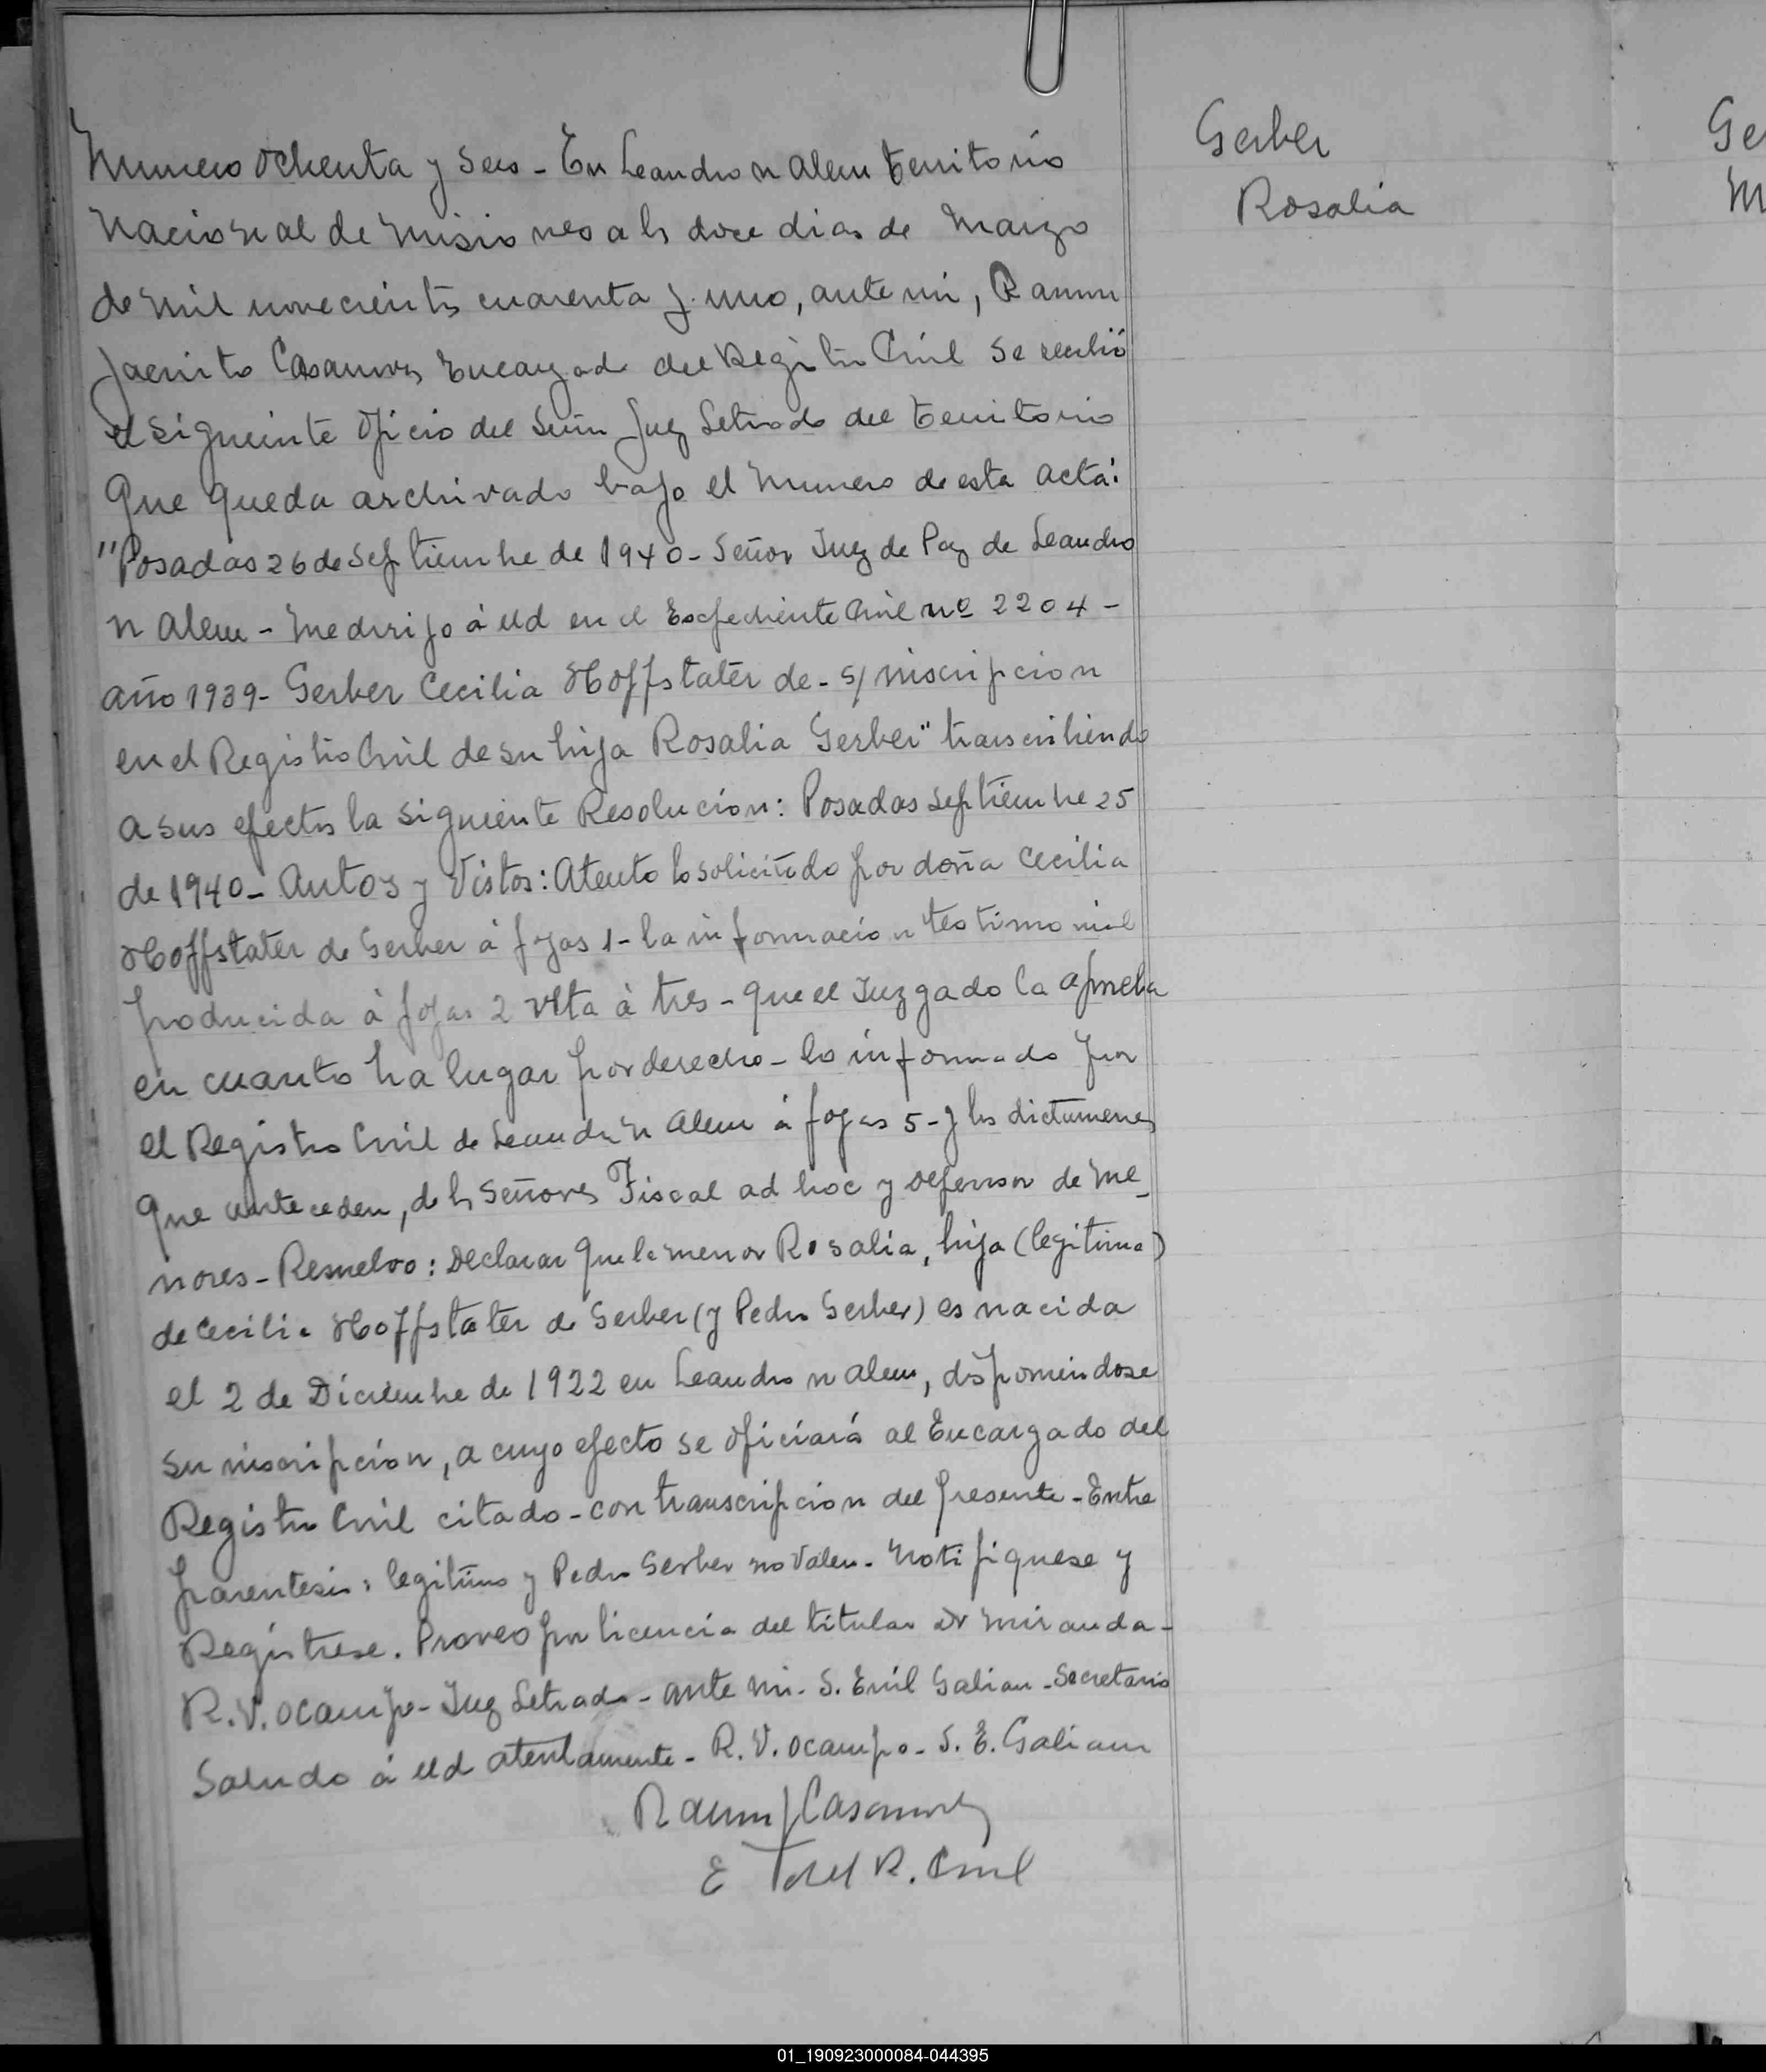 Numero ochenta y seis - En Leandro N Alem territorio
Nacional de Misiones a los doce dias de Marzo
de mil novecientos cuarenta y uno, ante mi, Ramon
Jacinto Casanova Encargado del Registro Civil se recibió
el siguiente oficio del Señor Juez Letrado del territorio
que queda archivado bajo el numero de esta acta:
"Posadas 26 de Septiembre de 1940 - Señor Juez de Paz de Leandro
N Alem - Me dirijo á Ud en el Expediente Civil nº 2204 -
año 1939 - Gerber Cecilia Hoffstater de - s/ inscripcion
en el Registro Civil de su hija Rosalia Gerber" transcribiendo
a sus efectos la siguiente Resolucion: Posadas Septiembre 25
de 1940 - Autos y Vistos: Atento lo solicitado por doña Cecilia
Hoffstater de Gerber á fojas 1 - la informacion testimonial
producida á fojas 2 vlta á tres - que el Juzgado la aprueba
en cuanto ha lugar por derecho - lo informado por
el Registro Civil de Leandro N Alem á fojas 5 - y los dictamenes
que anteceden, de los Señores Fiscal ad hoc y defensor de Me_
nores - Resuelvo: Declarar que la menor Rosalia, hija (legitima)
de Cecilia Hoffstater de Gerber (y Pedro Gerber) es nacida
el 2 de Diciembre de 1922 en Leandro N Alem, disponiendose
su inscripción, a cuyo efecto se oficiará al Encargado del
Registro Civil citado - con transcripcion del presente - Entre
parentesis: legitimo y Pedro Gerber no valen - Notifiquese y
Registrese. Proveo por licencia del titular Dr Miranda -
R. V. Ocampo - Juez Letrado - ante mi - S. Emil Galian - Secretario
Saludo á Ud atentamente - R. V. Ocampo - S. E. Galian
Ramon J Casanova
E del R. Civil
Gerber
Rosalia
Ge
M
01_190923000084-044395